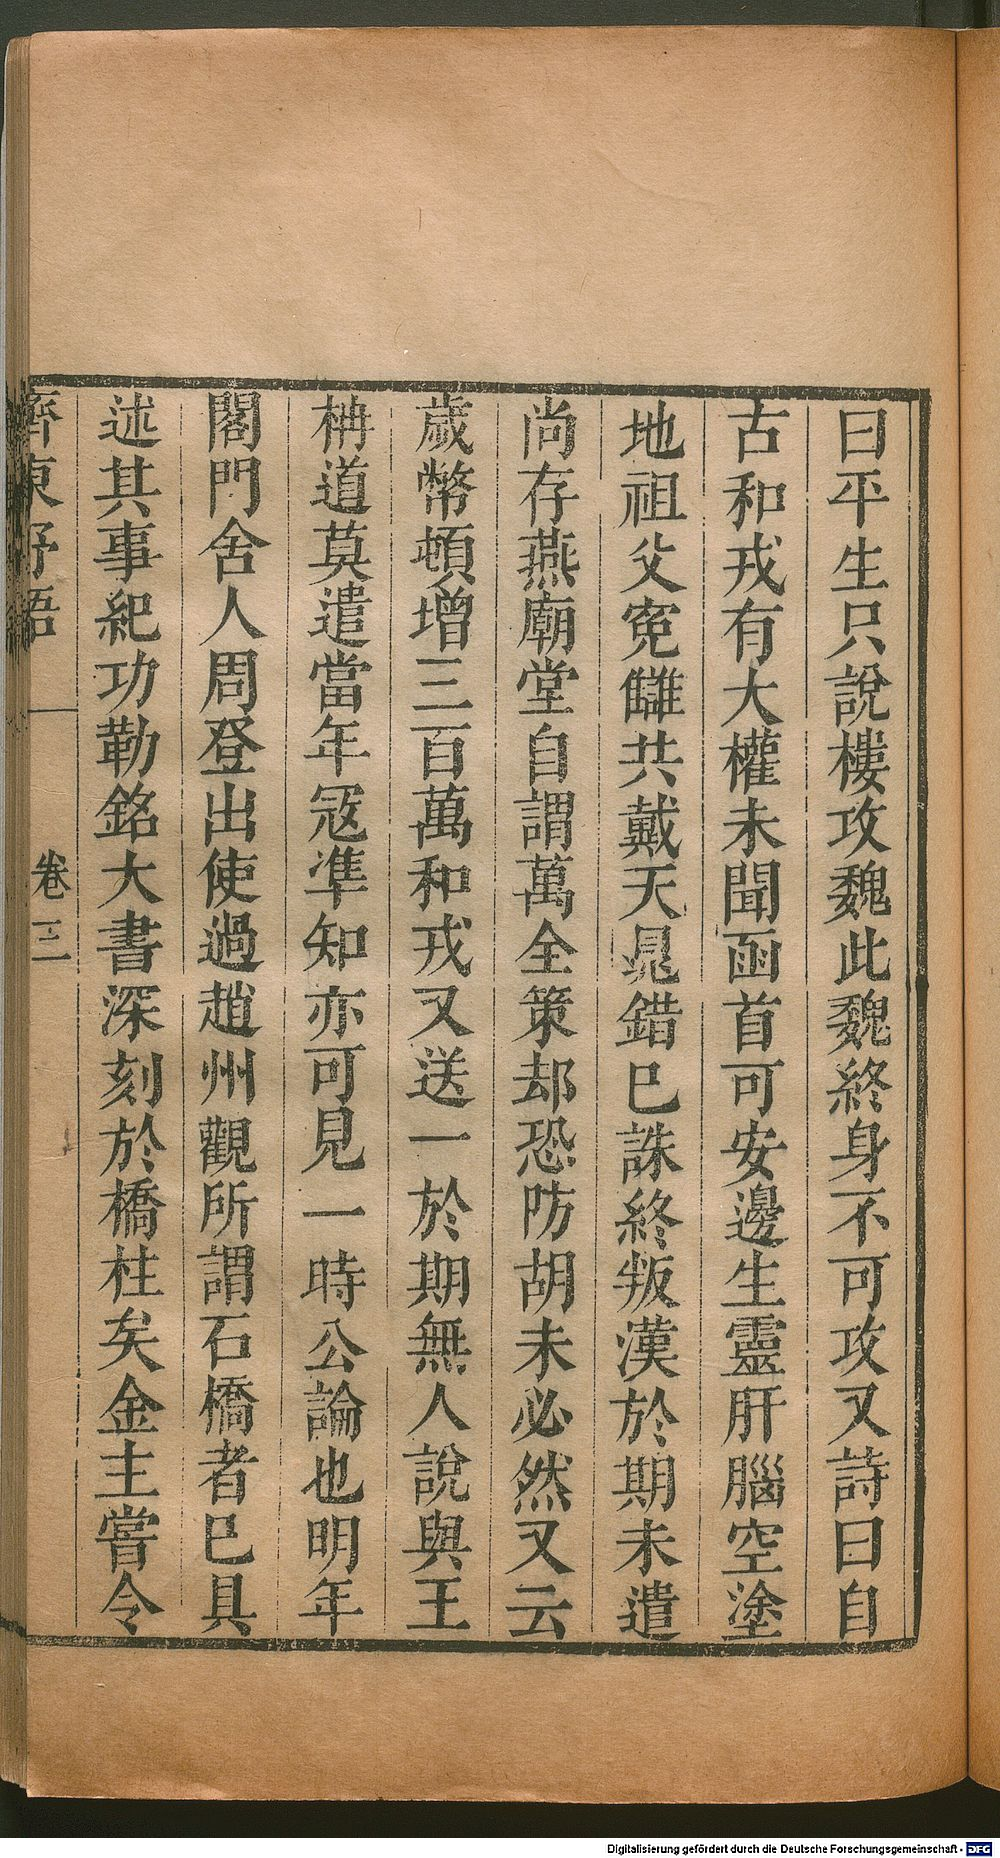 曰平生只說樓攻魏此魏終身不可攻又詩曰自
古和戎有大權未聞函首可安邊生靈肝腦空塗
地祖父寃讎共戴天鼂錯已誅終叛漢於期未遣
尚存燕廟堂自謂萬全策却恐防胡未必然又云
歲幣頓增三百萬和戎又送一於期無人說與王
柟道莫遣當年寇準知亦可見一時公論也明年
閤門舍人周登出使過趙州觀所謂石橋者已具
述其事紀功勒銘大書深刻於橋柱矣金主嘗令
齊東野語
卷三
Digitalisierung gefördert durch die Deutsche Forschungsgemeinschaft - DFG